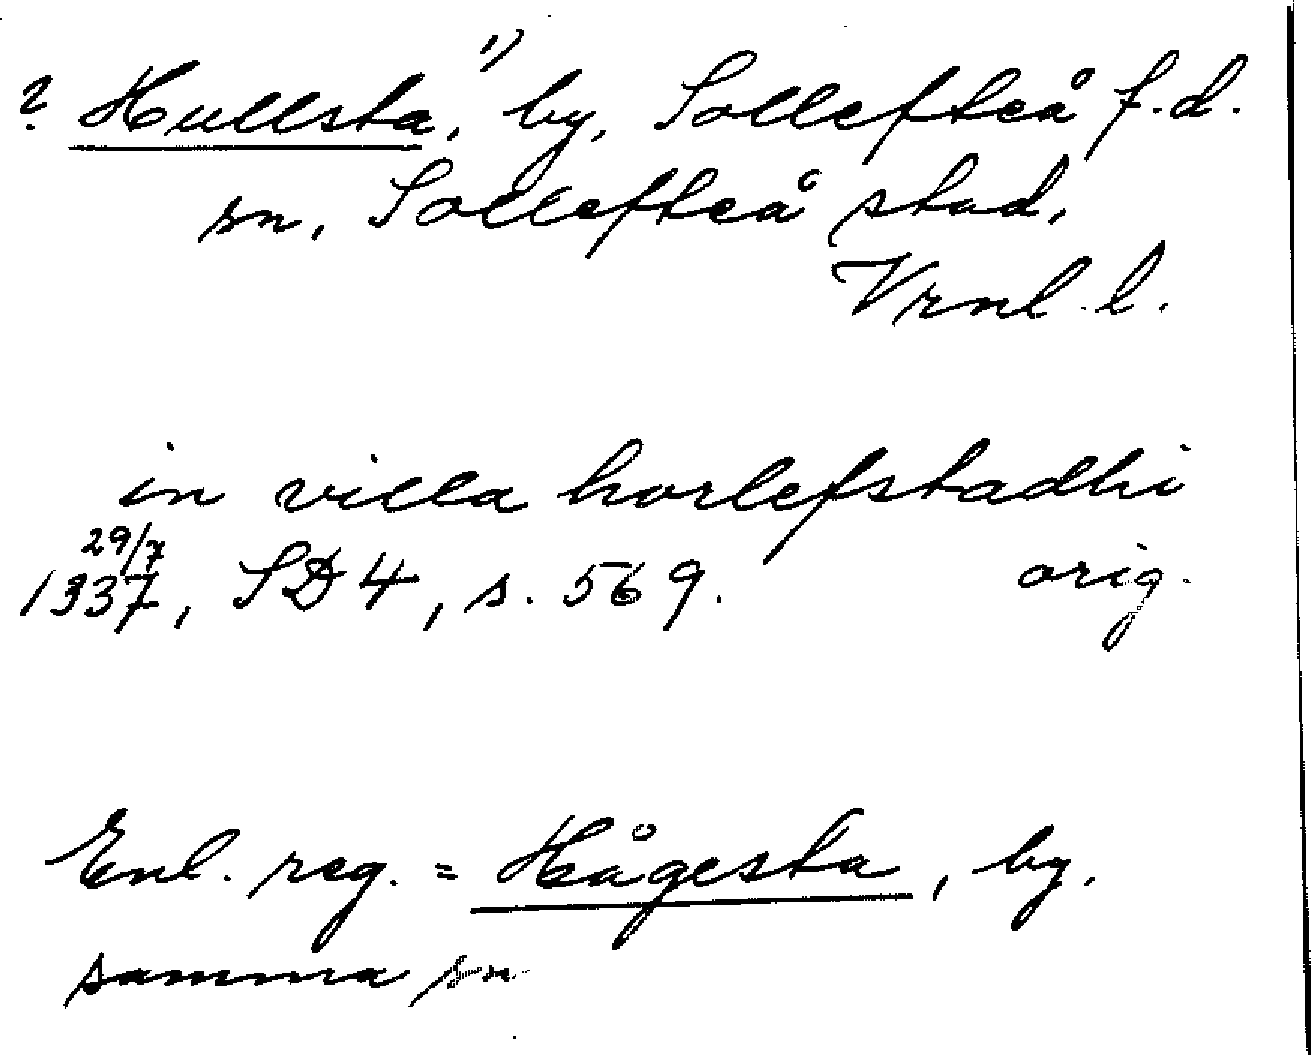 ? Hullsta,¹⁾ by, Sollefteå f.d.
sn, Sollefteå stad,
Vrnl. l.
in villa horlefstadhi
29/7
1337, SD 4, s. 569. orig.
Enl. reg. = Hågesta, by.
samma sn